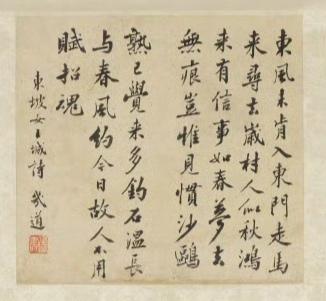 東風未肯入東門走馬
来尋去歲村人似秋鴻
来有信事如春夢去
無痕豈惟見慣沙鷗
熟已覺来多釣石溫長
与春風約今日故人不用
賦招魂
東坡女王城詩 幾道